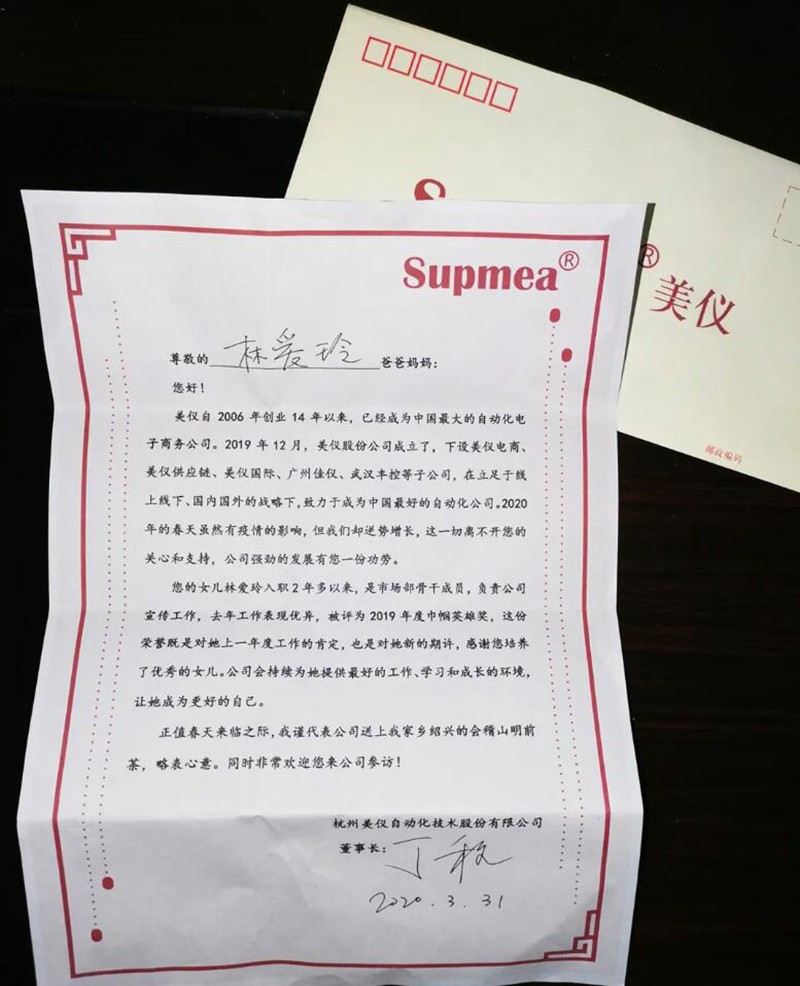 美仪
邮政编码
Supmea®
尊敬的 林爱玲 爸爸妈妈：
您好！
美仪自 2006 年创业 14 年以来，已经成为中国最大的自动化电
子商务公司。2019 年 12 月，美仪股份公司成立了，下设美仪电商、
美仪供应链、美仪国际、广州佳仪、武汉丰控等子公司，在立足于线
上线下、国内国外的战略下，致力于成为中国最好的自动化公司。2020
年的春天虽然有疫情的影响，但我们却逆势增长，这一切离不开您的
关心和支持，公司强劲的发展有您一份功劳。
您的女儿林爱玲入职 2 年多以来，是市场部骨干成员，负责公司
宣传工作，去年工作表现优异，被评为 2019 年度巾帼英雄奖，这份
荣誉既是对她上一年度工作的肯定，也是对她新的期许，感谢您培养
了优秀的女儿。公司会持续为她提供最好的工作、学习和成长的环境，
让她成为更好的自己。
正值春天来临之际，我谨代表公司送上我家乡绍兴的会稽山明前
茶，略表心意。同时非常欢迎您来公司参访！
杭州美仪自动化技术股份有限公司
董事长：丁
2020.3.31